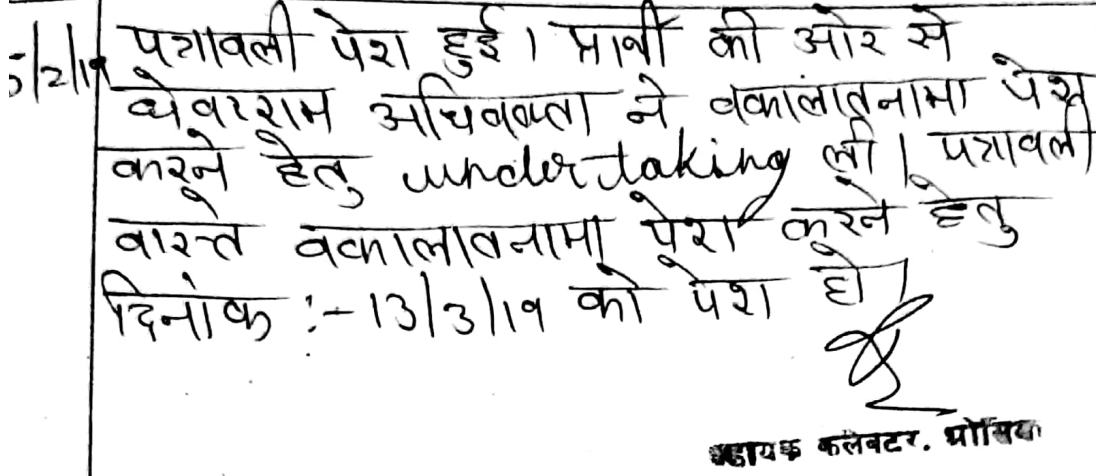 5/2/19 पत्रावली पेश हुई। प्रार्थी की ओर से
घेवरराम अधिवक्ता ने वकालातनामा पेश
करने हेतु undertaking ली। पत्रावली
वास्ते वकालातनामा पेश करने हेतु
दिनांक :- 13/3/19 को पेश हो।
सहायक कलेक्टर.